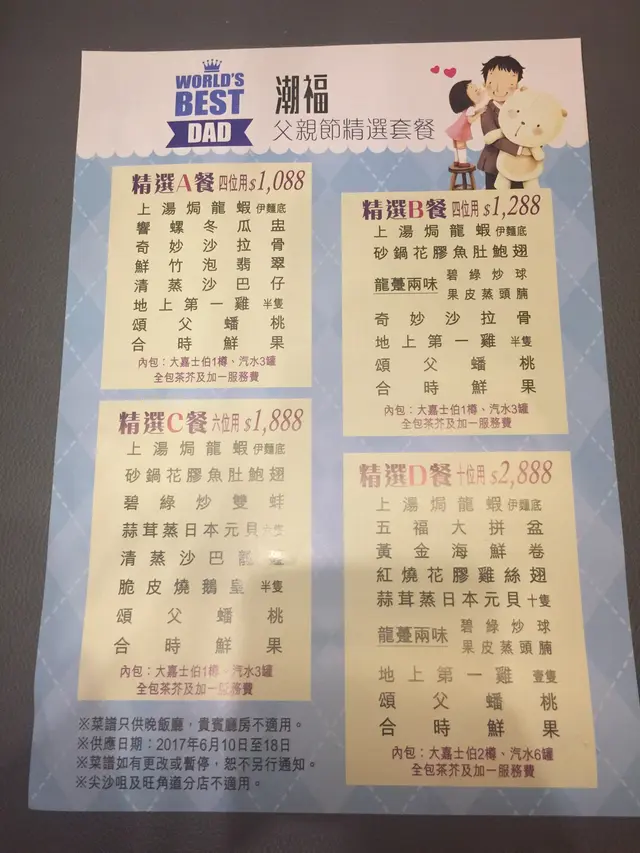 WORLD'S
BEST
DAD
潮福
父親節精選套餐
精選A餐 四位用 $1,088
上湯焗龍蝦 伊麵底
響螺冬瓜盅
奇妙沙拉骨
鮮竹泡翡翠
清蒸沙巴仔
地上第一雞 半隻
頌父蟠桃
合時鮮果
內包：大嘉士伯1樽、汽水3罐
全包茶芥及加一服務費
精選B餐 四位用 $1,288
上湯焗龍蝦 伊麵底
砂鍋花膠魚肚鮑翅
龍躉兩味 碧綠炒球
果皮蒸頭腩
奇妙沙拉骨
地上第一雞 半隻
頌父蟠桃
合時鮮果
內包：大嘉士伯1樽、汽水3罐
全包茶芥及加一服務費
精選C餐 六位用 $1,888
上湯焗龍蝦 伊麵底
砂鍋花膠魚肚鮑翅
碧綠炒雙蚌
蒜茸蒸日本元貝
清蒸沙巴龍
脆皮燒鵝皇 半隻
頌父蟠桃
合時鮮果
內包：大嘉士伯1樽、汽水3罐
全包茶芥及加一服務費
精選D餐 十位用 $2,888
上湯焗龍蝦 伊麵底
五福大拼盆
黃金海鮮卷
紅燒花膠雞絲翅
蒜茸蒸日本元貝 十隻
龍躉兩味 碧綠炒球
果皮蒸頭腩
地上第一雞 壹隻
頌父蟠桃
合時鮮果
內包：大嘉士伯2樽、汽水6罐
全包茶芥及加一服務費
※菜譜只供晚飯廳，貴賓廳房不適用。
※供應日期：2017年6月10日至18日
※菜譜如有更改或暫停，恕不另行通知。
※尖沙咀及旺角道分店不適用。